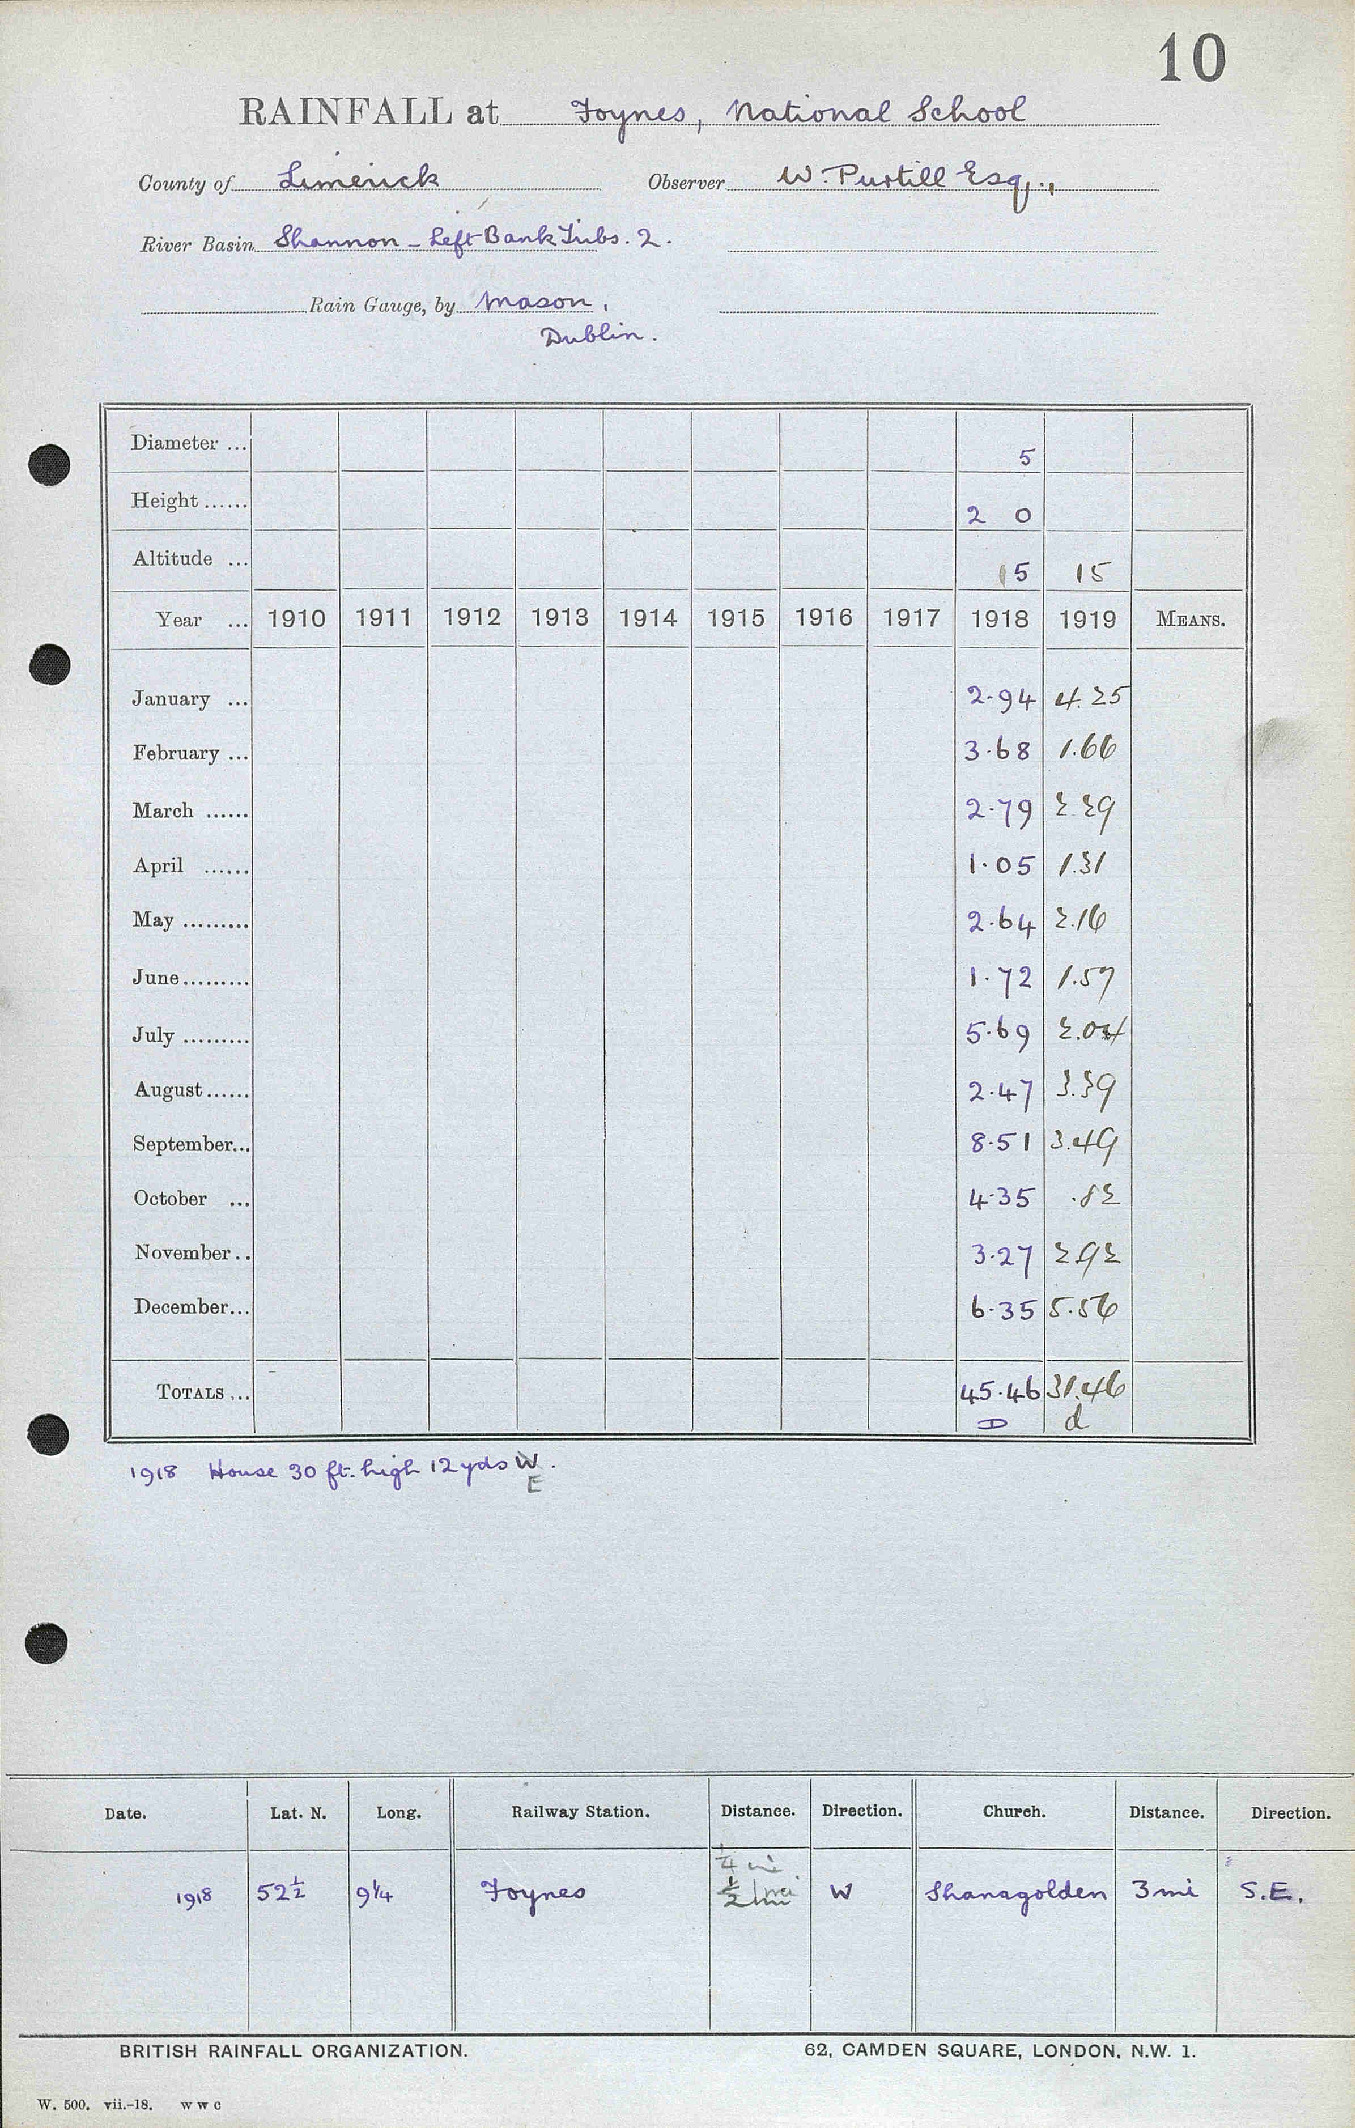 10
RAINFALL at Foynes, National School
County of Limerick Observer W. Purtill Esq.,
River Basin Shannon - Left Bank Tribs. 2.
Rain Gauge, by Mason,
Dublin.
Diameter ... 5
Height ...... 2 0
Altitude ... 15 15
Year ... 1910 1911 1912 1913 1914 1915 1916 1917 1918 1919 MEANS.
January ... 2.94 4.25
February ... 3.68 1.66
March ...... 2.79 2.29
April ...... 1.05 1.31
May ......... 2.64 2.16
June ......... 1.72 1.57
July ......... 5.69 2.04
August ...... 2.47 3.39
September... 8.51 3.49
October ... 4.35 .82
November.. 3.27 2.92
December... 6.35 5.56
TOTALS ... 45.46 31.46
D d
1918 House 30 ft. high 12 yds W.
E
Date. Lat. N. Long. Railway Station. Distance. Direction. Church. Distance. Direction.
¼ mi
1918 52½ 9¼ Foynes ½ mi W Shanagolden 3 mi S.E.
BRITISH RAINFALL ORGANIZATION. 62, CAMDEN SQUARE, LONDON, N.W. 1.
W. 500. vii.-18. w w c